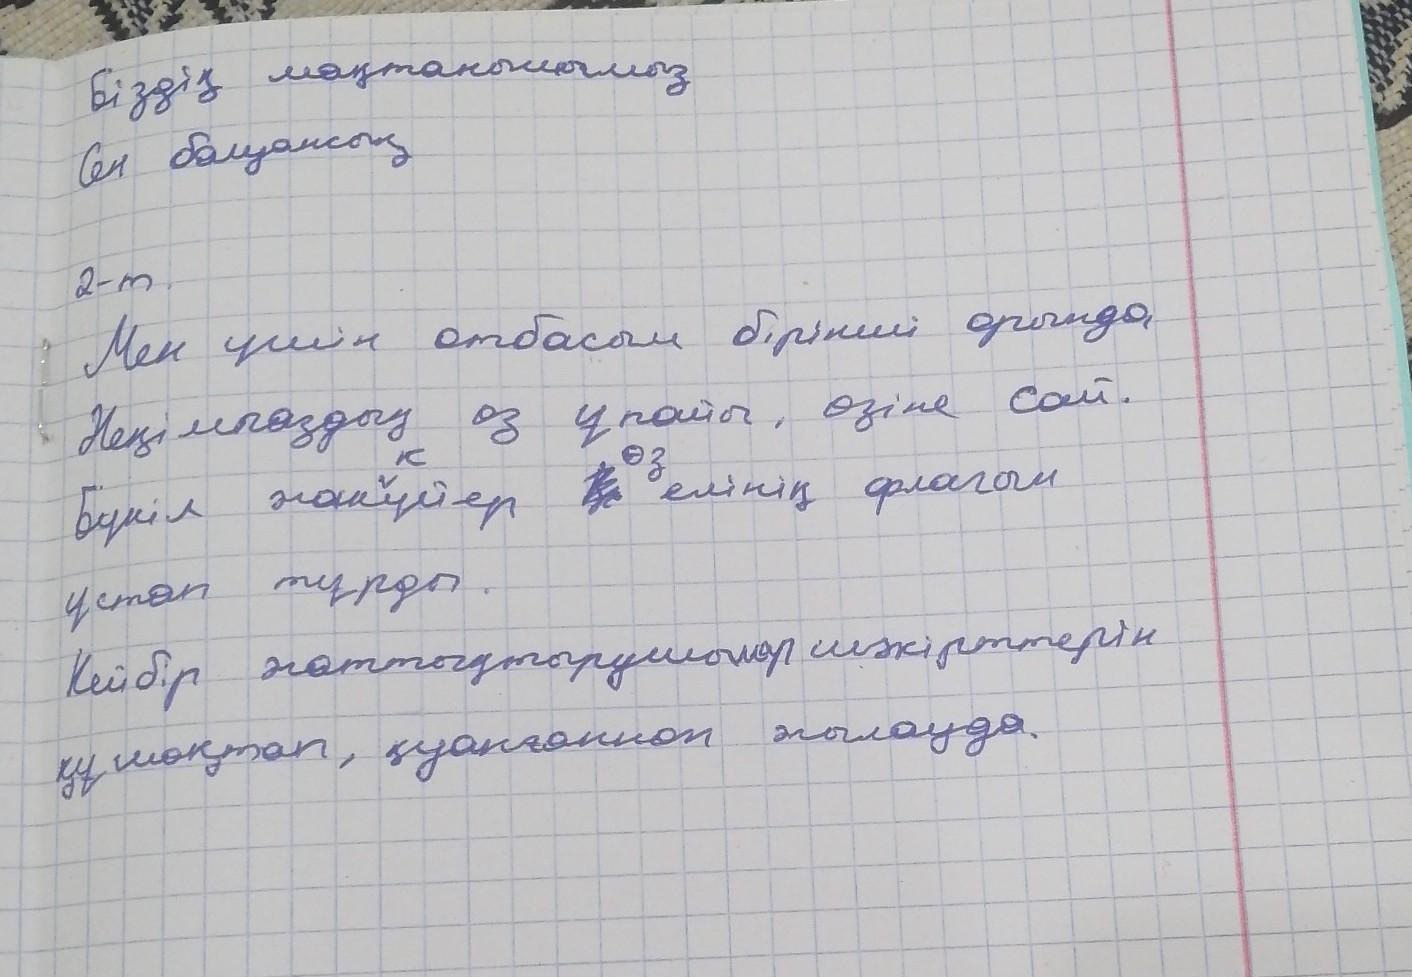 Біздің мақтанышымыз
Сен балуансың
2-т.
Мен үшін отбасым бірінші орында
Жеңімпаздың өз ұпайы, өзіне сай.
Бүкіл жанкүйер өз елінің флагын
ұстап тұрды.
Кейбір жаттықтырушылар шәкірттерін
құшақтап, қуанғаннан жылауда.